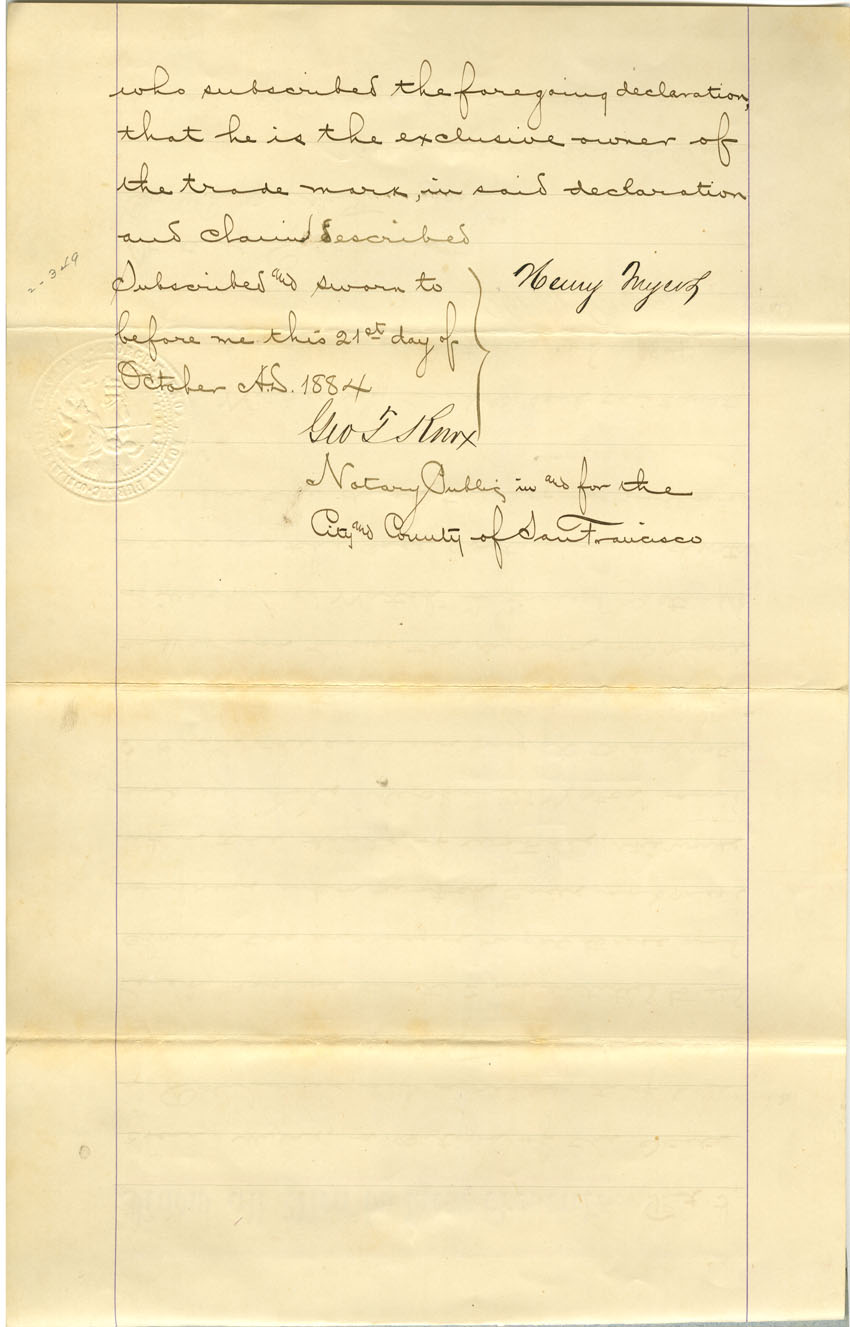 who subscribed the foregoing declaration,
that he is the exclusive owner of
the trade mark, in said declaration
and claim described
Subscribed and sworn to
before me this 21st day of
October A.D. 1884
Henry Myers
Geo T Knox
Notary Public in and for the
City and County of San Francisco